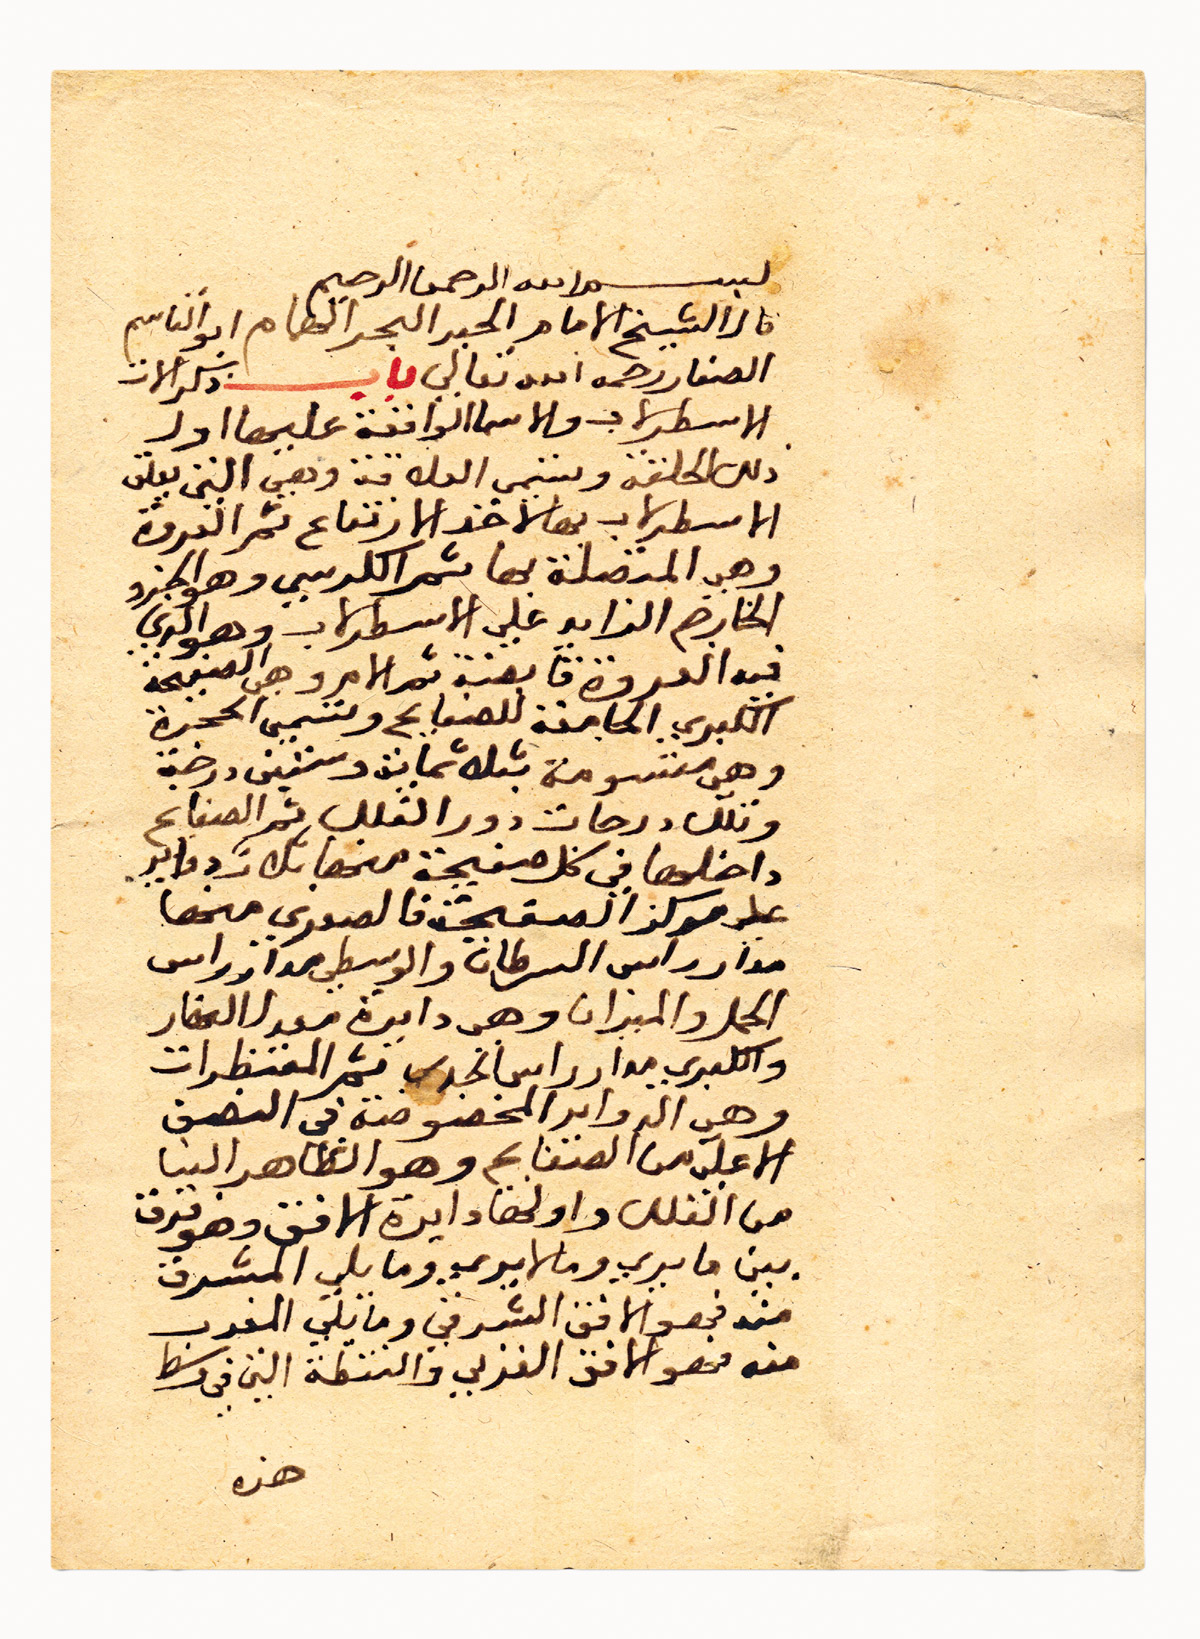 بسم الله الرحمن الرحيم
قال الشيخ الامام الحبر البحر الهمام ابو القاسم
الصفار رحمه الله تعالي باب ذكر الات
الاسطرلاب والاسما الواقعة عليها اول
ذلك الحلقة وتسمى العلاقة وهي التي يعلق
الاسطرلاب بها لاخذ الارتفاع ثم العروة
وهي المتصلة بها ثم الكرسي وهو الجزو
الخارج الزايد علي الاسطرلاب وهو الذي
فيه العروة ثابتة ثم الام وهي الصفيحة
الكبري الجامعة للصفايح وتسمى الحجرة
وهي مقسومة بثلاثماية وستين درجة
وتلك درجات دور الفلك ثم الصفايح
داخلها في كل صفيحة منها ثلاث دواير
علي مركز الصفيحة فالصغري منها
مدار راس السرطان والوسطي مدار راس
الحمل والميزان وهي دايرة معدل النهار
والكبري مدار راس الجدي ثم المقنطرات
وهي الدواير المخصوصة في النصف
الاعلي من الصفايح وهو الظاهر الينا
من الفلك واولها دايرة الافق وهو فرق
بين ما يري وما لا يري وما يلي المشرق
منه فهو الافق الشرقي وما يلي المغرب
منه فهو الافق الغربي والنقطة التي في وسط
هذه